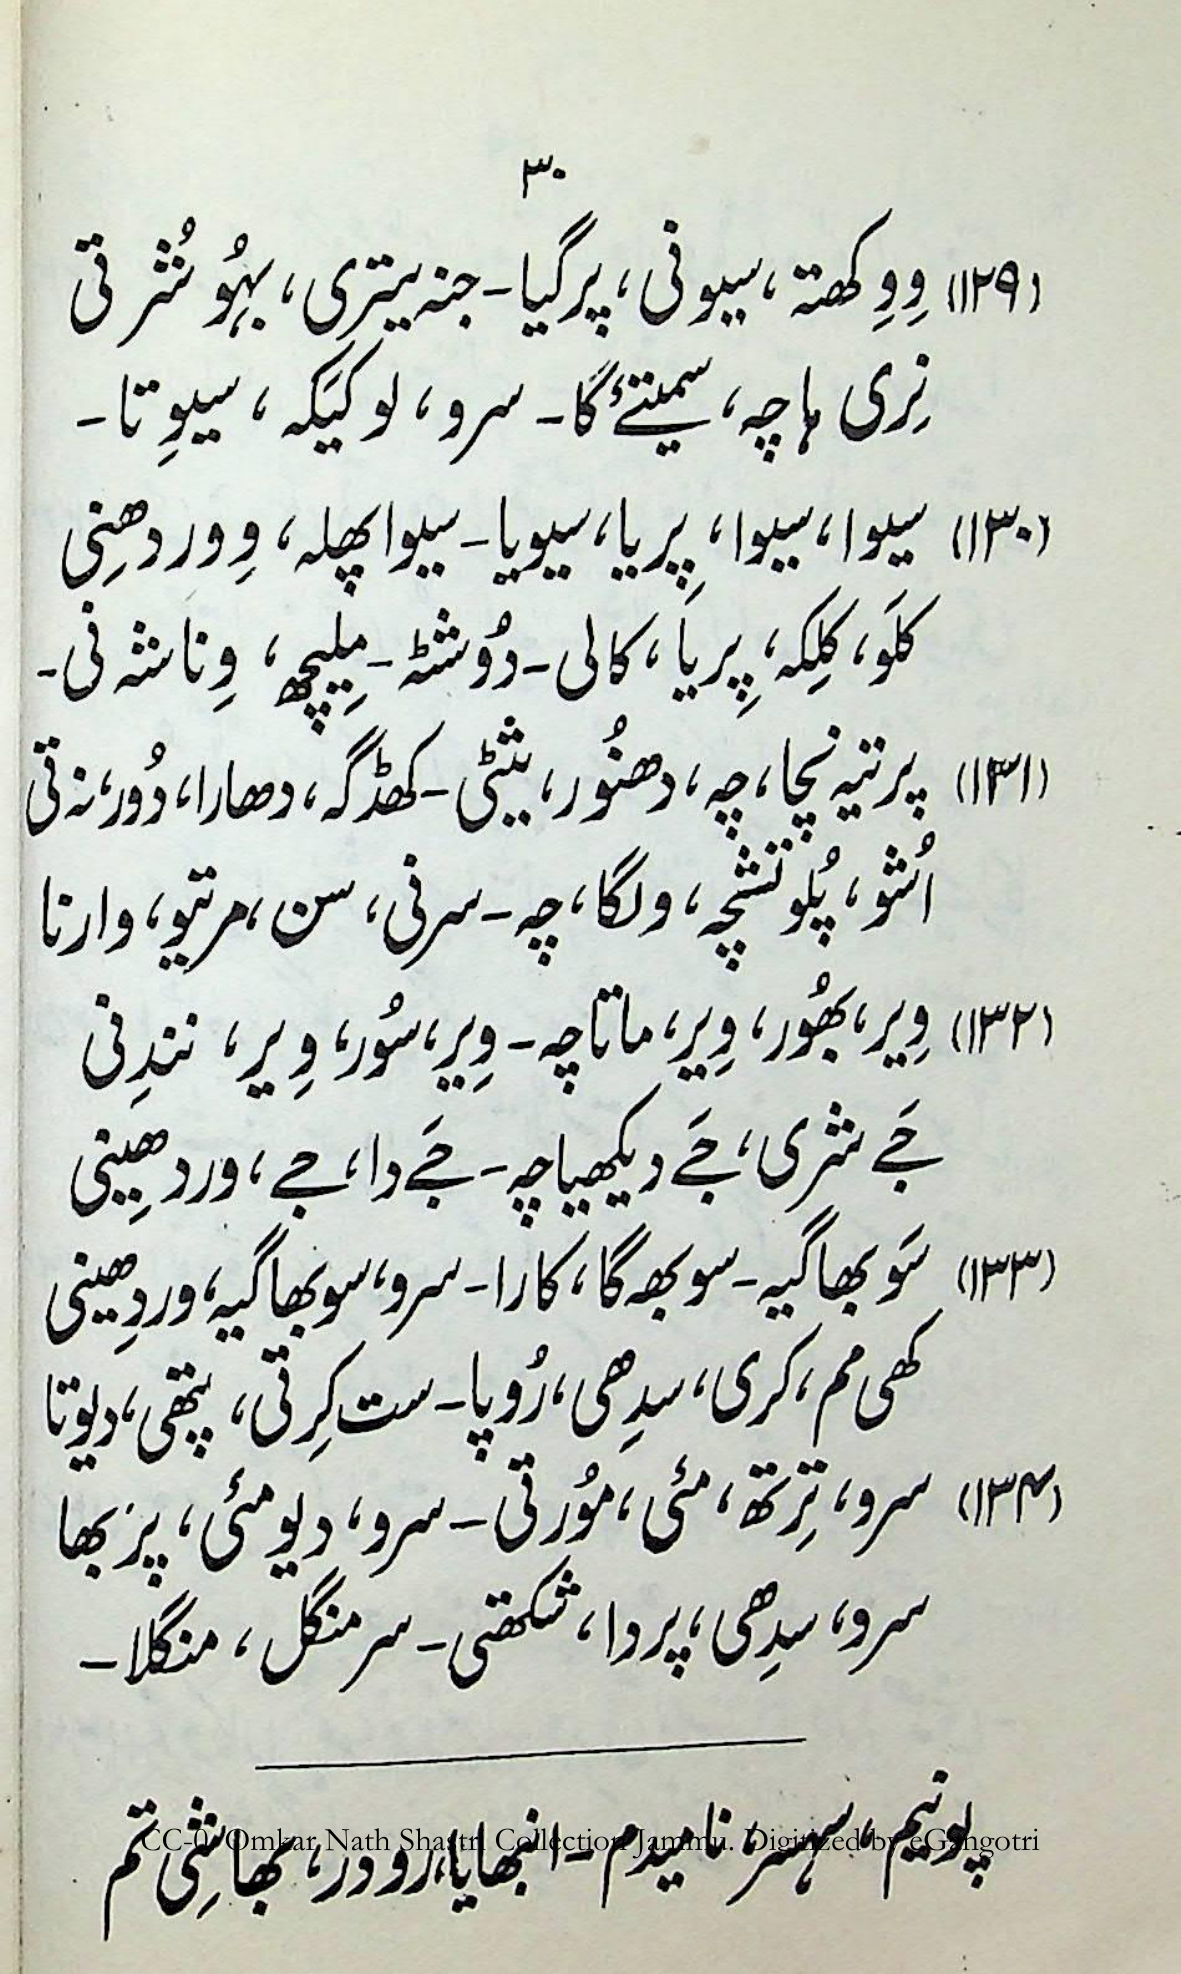 ۳۰
(۱۲۹) وِوِکھتہ، سیونی، پرگیا۔جنہ یتری، بہُو شُرتی
نِری ہاچہ، سمیتۓ گا۔ سرو، لوکیَکہ، سیوِتا۔
(۱۳۰) سیوا، سیوا، پِریا، سیویا۔سیوا پھلہ، وِوردھِنی
کلَو، کلِکہ، پِریا، کالی۔دُوشٹہ۔مِلیچھ، وِناشہ نی۔
(۱۳۱) پرتیہ نچا، چہ، دھنُور، یشٹی۔کھڈگہ، دھارا، دُور، نہ تی
اُشو، پُلوتشچہ، ولگا، چہ۔سرنی، سن، مرتیو، وارنا
(۱۳۲) وِیر، بھُور، وِیر، ماتاچہ۔وِیر، سُور، وِیر، نندِنی
جَے شری، جَے دیکھیاچہ۔جَے دا، جے، وردھِینی
(۱۳۳) سَوبھاگیہ۔سوبھہ گا، کارا۔سرو، سوبھاگیہ، وردِھینی
کھی مم، کری، سدِھی، رُوپا۔ست کِرتی، پتھی، دیوتا
(۱۳۴) سرو، تِرتھ، مئی، مُورتی۔سرو، دیو مئی، پربھا
سرو، سدِھی، پروا، شکھتی۔سر منگل، منگلا۔
پونیم، سہسر، نامیدم۔انبھایا، رودر، بھاشِی تم
CC-0. Omkar Nath Shastri Collection Jammu. Digitized by eGangotri